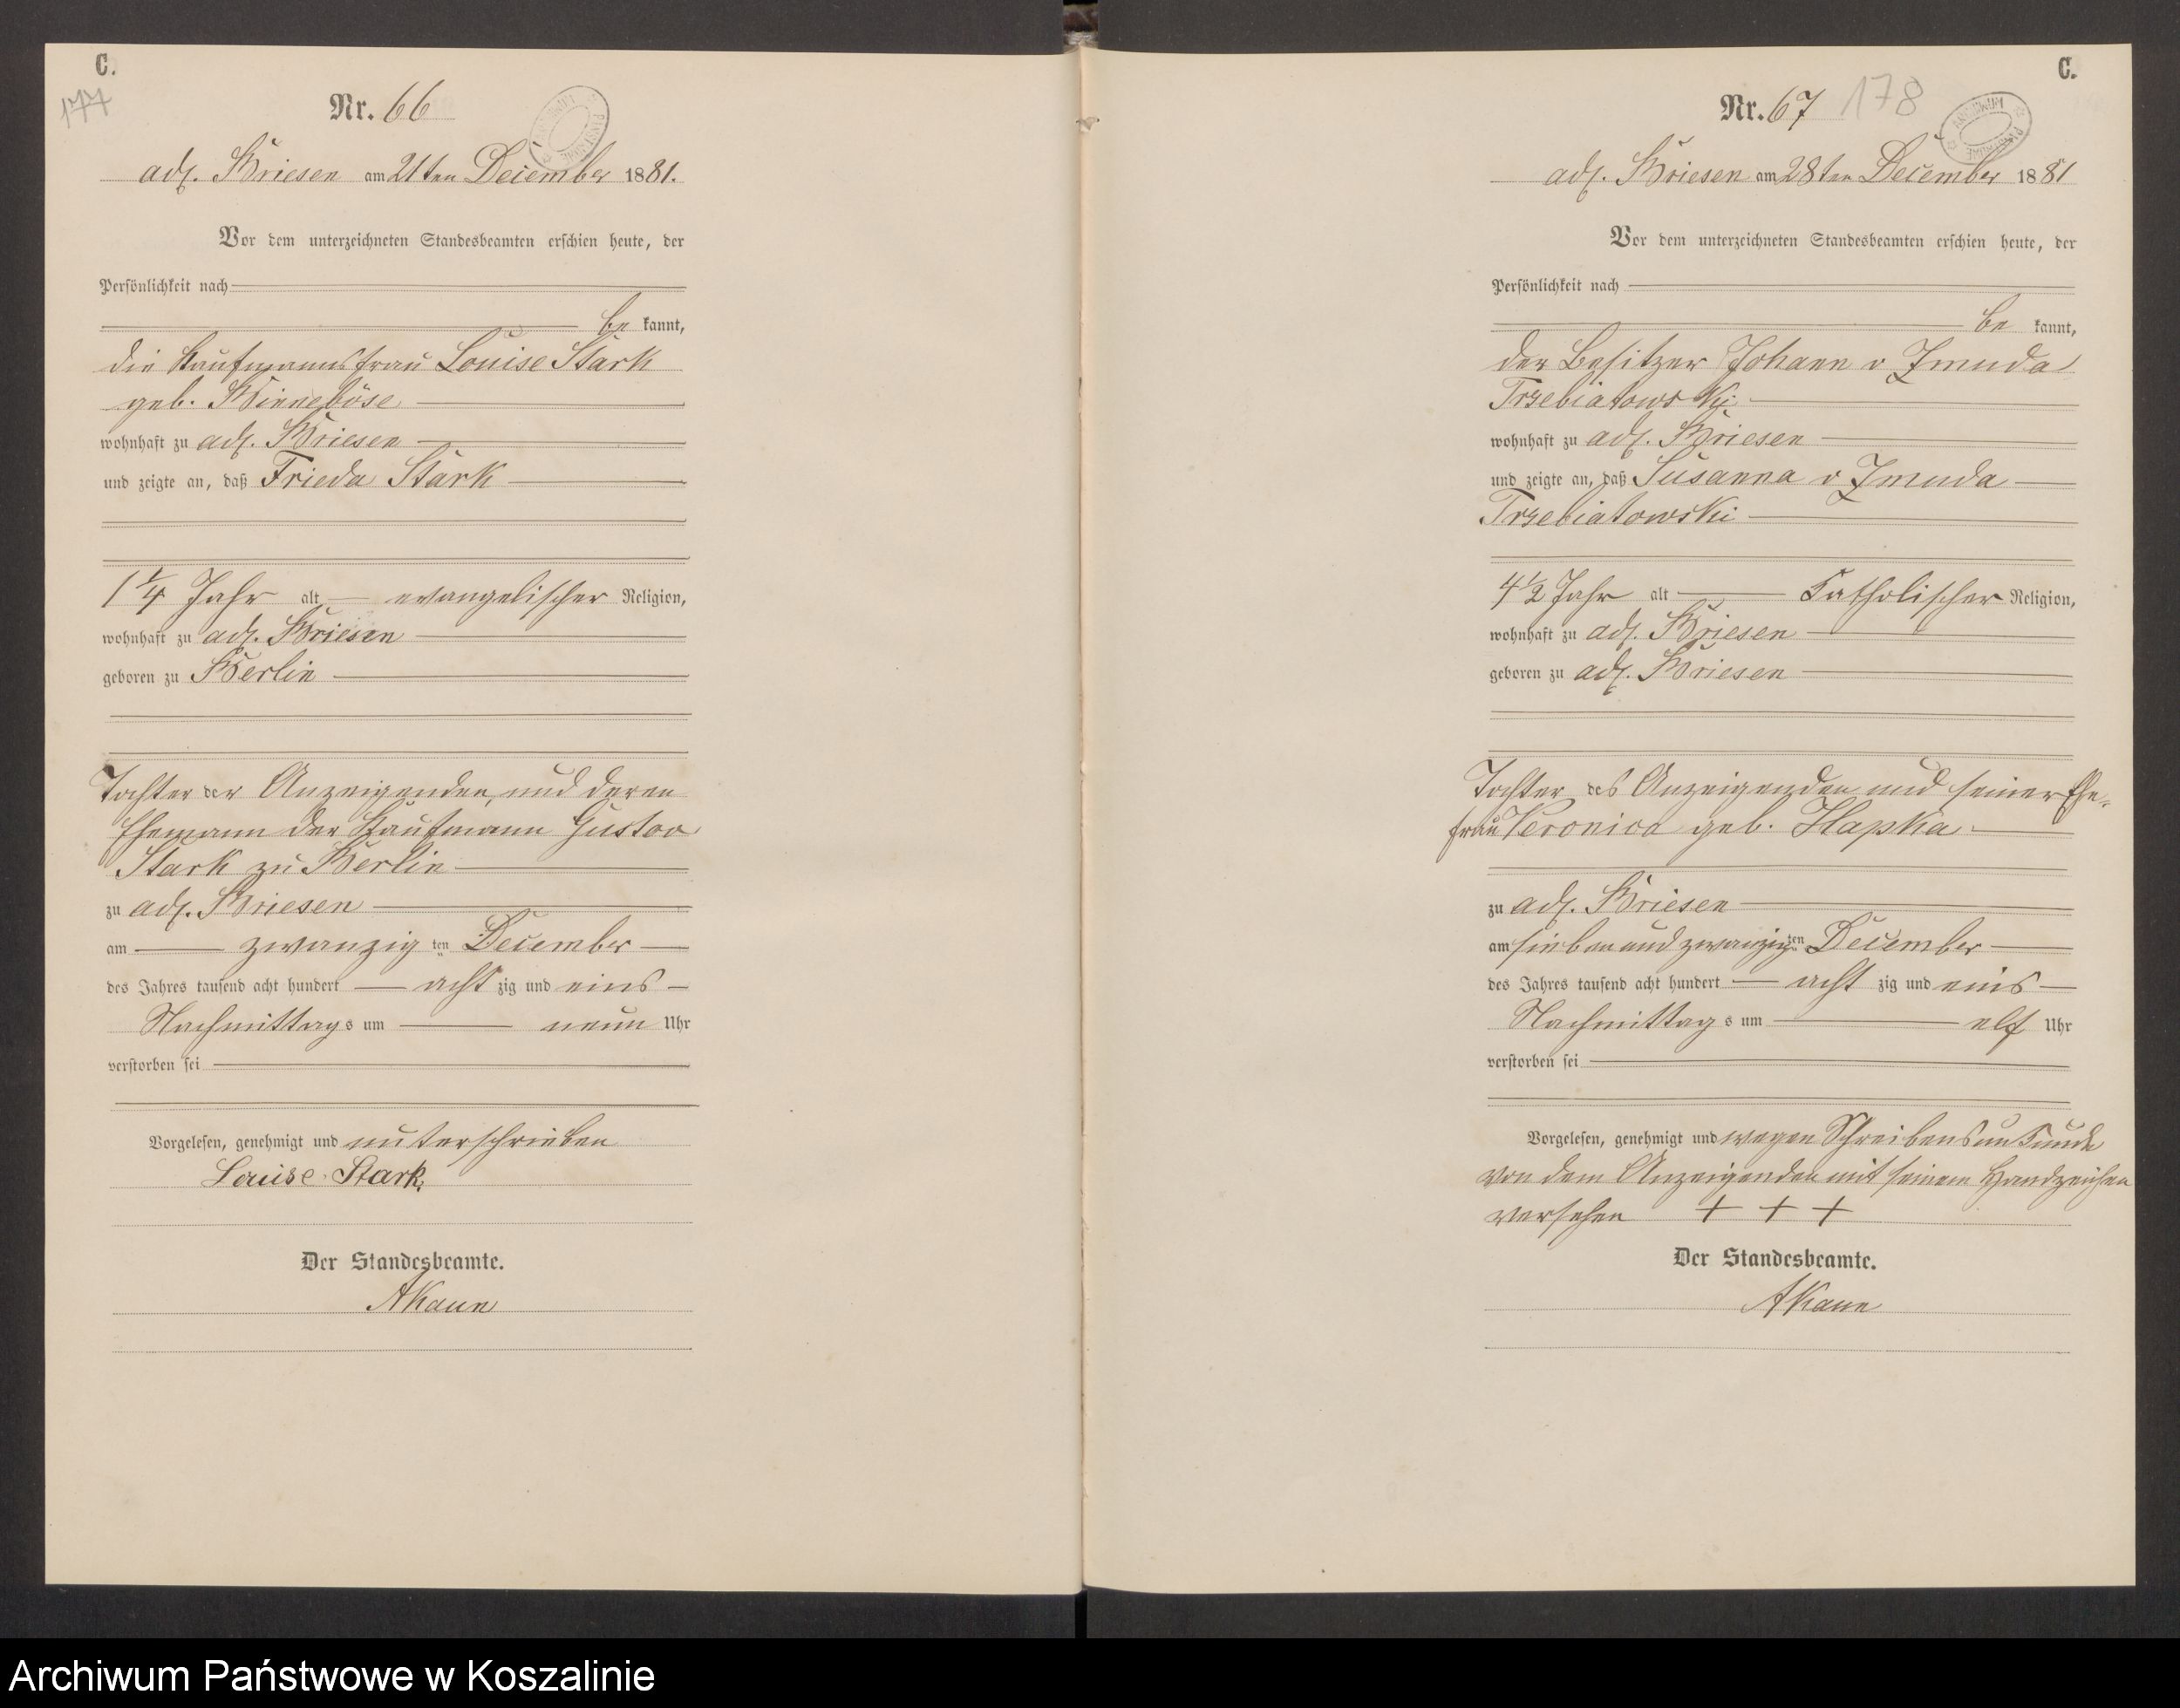 C.
177
Nr. 66
adl. Briesen am 21ten December 1881.
Vor dem unterzeichneten Standesbeamten erschien heute, der
Persönlichkeit nach
be kannt,
die Kaufmannsfrau Louise Stark
geb. Binneböse
wohnhaft zu adl. Briesen
und zeigte an, daß Frieda Stark
1 1/4 Jahr alt evangelischer Religion,
wohnhaft zu adl. Briesen
geboren zu Berlin
Tochter der Anzeigenden, und deren
Ehemann der Kaufmann Gustav
Stark zu Berlin
zu adl. Briesen
am zwanzig ten December
des Jahres tausend acht hundert acht zig und eins
Nachmittags um neun Uhr
verstorben sei
Vorgelesen, genehmigt und unterschrieben
Louise Stark.
Der Standesbeamte.
AKaun
C.
Nr. 67 178
adl. Briesen am 28ten December 1881
Vor dem unterzeichneten Standesbeamten erschien heute, der
Persönlichkeit nach
be kannt,
der Besitzer Johann v Zmuda
Trzebiatowski
wohnhaft zu adl. Briesen
und zeigte an, daß Susanna v Zmuda
Trzebiatowski
4 1/2 Jahr alt Katholischer Religion,
wohnhaft zu adl. Briesen
geboren zu adl. Briesen
Tochter des Anzeigenden und seiner Ehe-
frau Veronica geb. Hapka
zu adl. Briesen
am siebenundzwanzigten December
des Jahres tausend acht hundert acht zig und eins
Nachmittag s um elf Uhr
verstorben sei
Vorgelesen, genehmigt und wegen Schreibensunkunde
von dem Anzeigenden mit seinem Handzeichen
versehen + + +
Der Standesbeamte.
AKaun
Archiwum Państwowe w Koszalinie